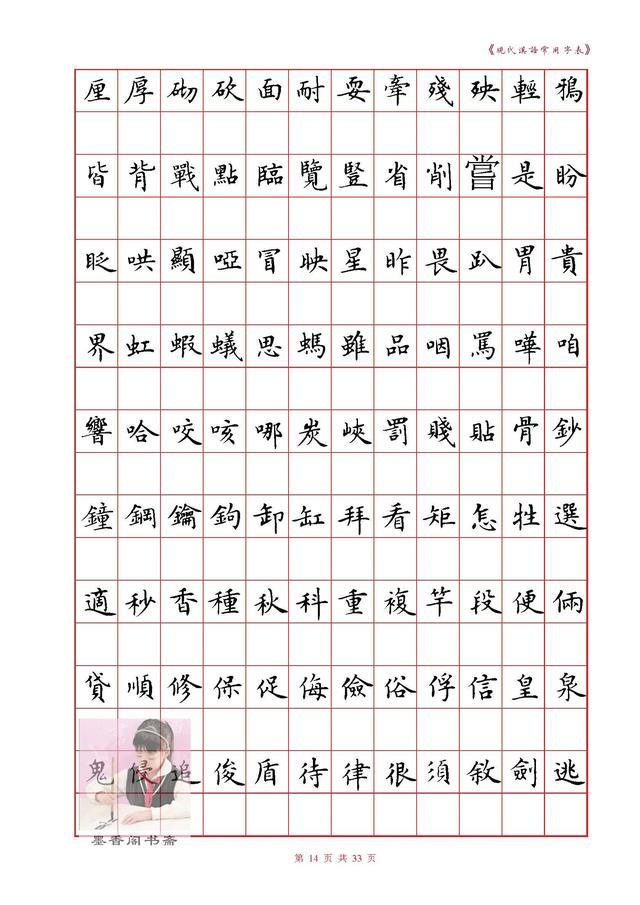 《现代漢語常用字表》
厘厚砌砍面耐耍牽殘殃輕鴉
皆背戰點臨覽豎省削嘗是盼
眨哄顯啞冒映星昨畏趴胃貴
界虹蝦蟻思螞雖品咽罵嘩咱
響哈咬咳哪炭峽罰賤貼骨鈔
鐘鋼鑰鉤卸缸拜看矩怎牲選
適秒香種秋科重複竿段便倆
貸順修保促侮儉俗俘信皇泉
鬼侵追俊盾待律很須敘劍逃
墨香阁书斋
第 14 页 共 33 页